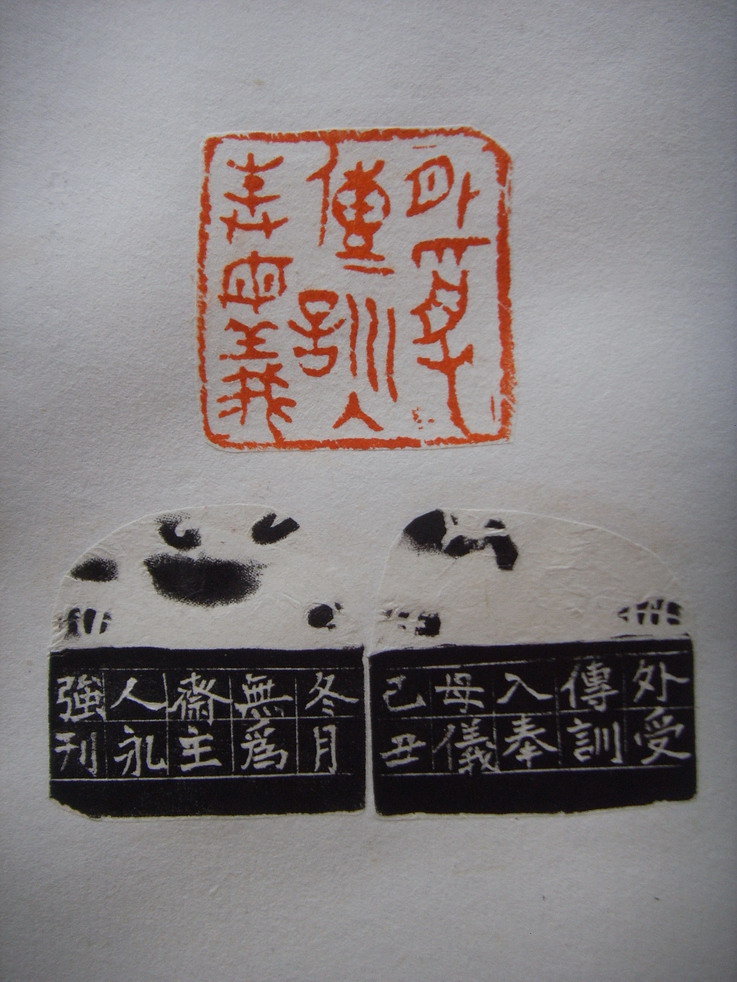 外受
傳訓入
奉母義
外受
傳訓
入奉
母儀
己丑
冬月
無爲
齋主
人礼
強刊